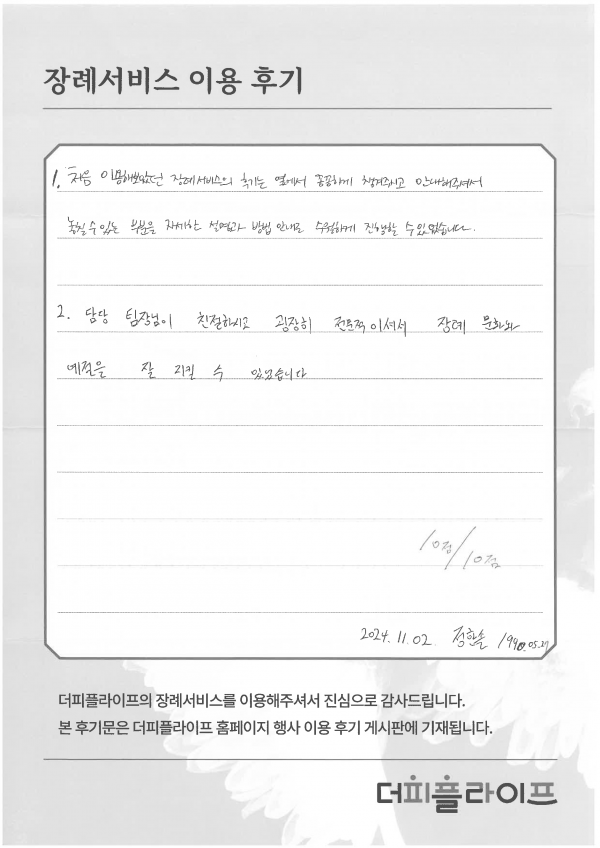 장례서비스 이용 후기
1. 처음 이용해보았던 장례서비스의 후기는 옆에서 꼼꼼하게 챙겨주시고 안내해주셔서
놓칠 수 있는 부분을 자세한 설명과 방법 안내로 수월하게 진행할 수 있었습니다.
2. 담당 팀장님이 친절하시고 굉장히 전문적이셔서 장례 문화와
예절을 잘 지킬 수 있었습니다
10점/10점
2024.11.02. 정한솔 1990.05.27
더피플라이프의 장례서비스를 이용해주셔서 진심으로 감사드립니다.
본 후기문은 더피플라이프 홈페이지 행사 이용 후기 게시판에 기재됩니다.
더피플라이프